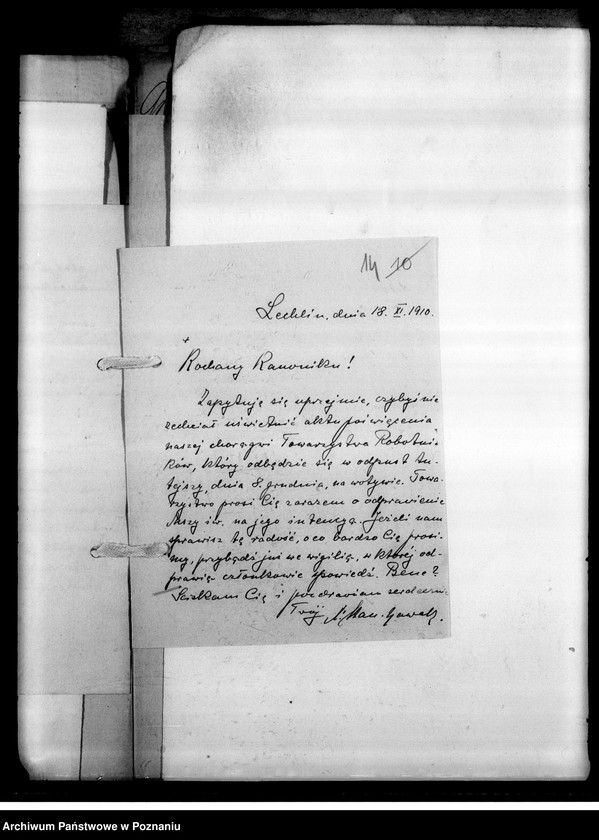 14 10
Lechlin, dnia 18. XI. 1910.
+
Kochany Kanoniku!
Zapytuję się uprzejmie, czybyś nie
zechciał uświetnić aktu poświęcenia
naszej chorągwi Towarzystwa Robotni-
ków, który odbędzie się w odpust tu-
tejszy, dnia 8. grudnia, na wotywie. Towa-
rzystwo prosi Cię zarazem o odprawienie
Mszy św. na jego intencyą. Jeżeli nam
sprawisz tę radość, o co bardzo Cię prosi-
my, przybądź już we wigilię, w której od-
prawią członkowie spowiedź. Bene?
Ściskam Cię i pozdrawiam serdecznie
Twój
Archiwum Państwowe w Poznaniu